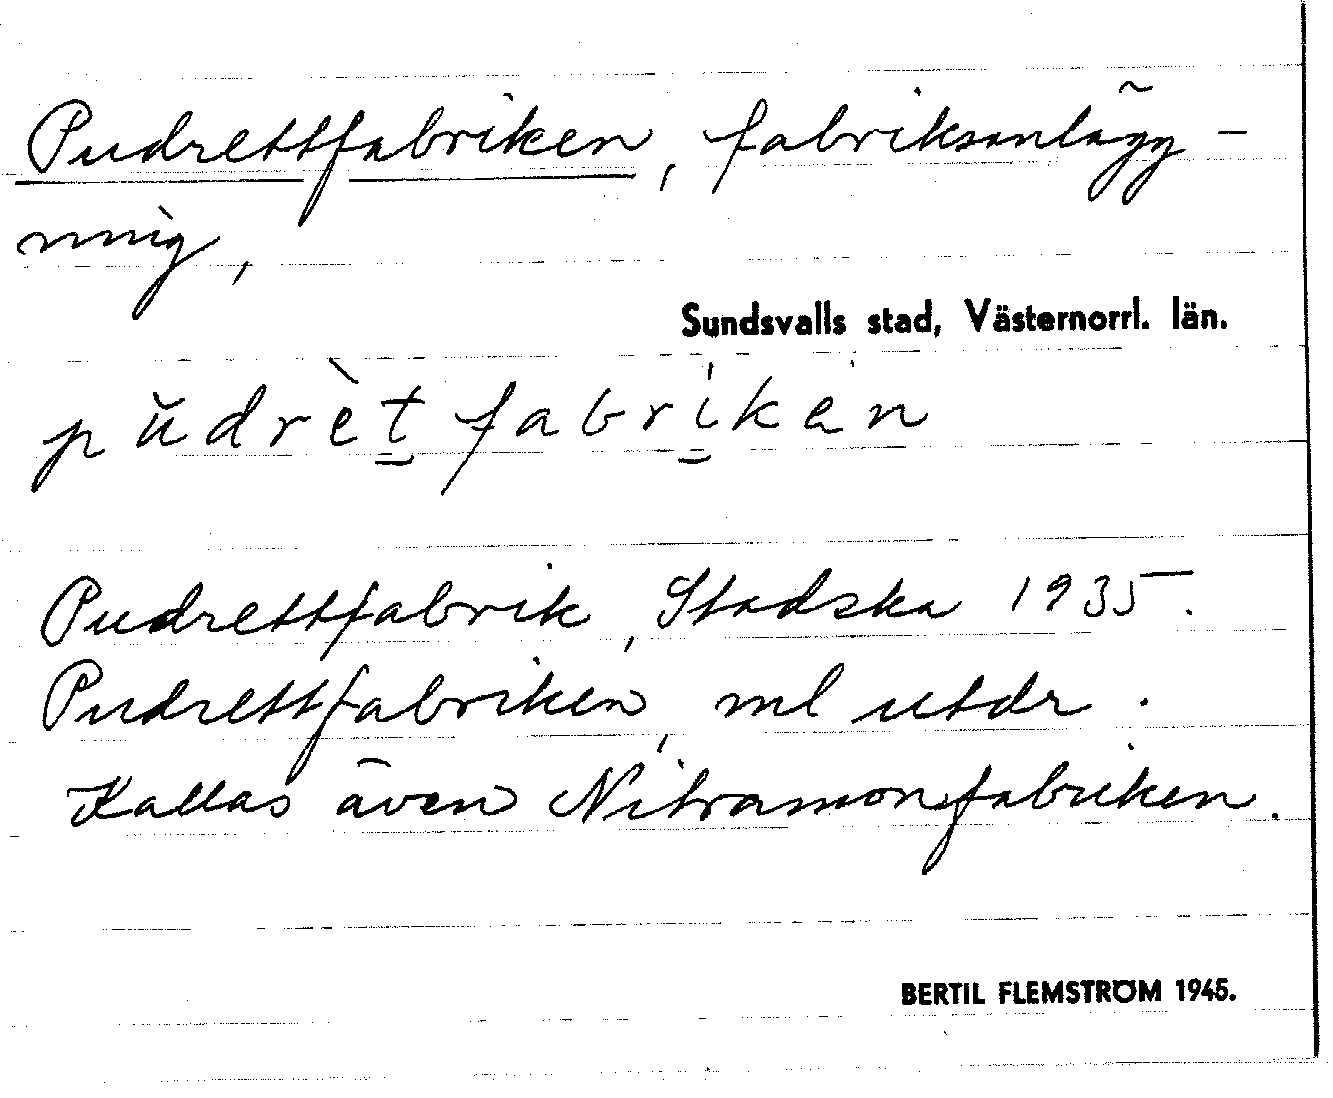 Pudrettfabriken, fabriksanlägg-
ning,
Sundsvalls stad, Västernorrl. län.
pŭdrèt̲fabrìken
Pudrettfabrik, Stadska 1935.
Pudrettfabriken, ml utdr.
Kallas även Nitramonfabriken.
BERTIL FLEMSTRÖM 1945.